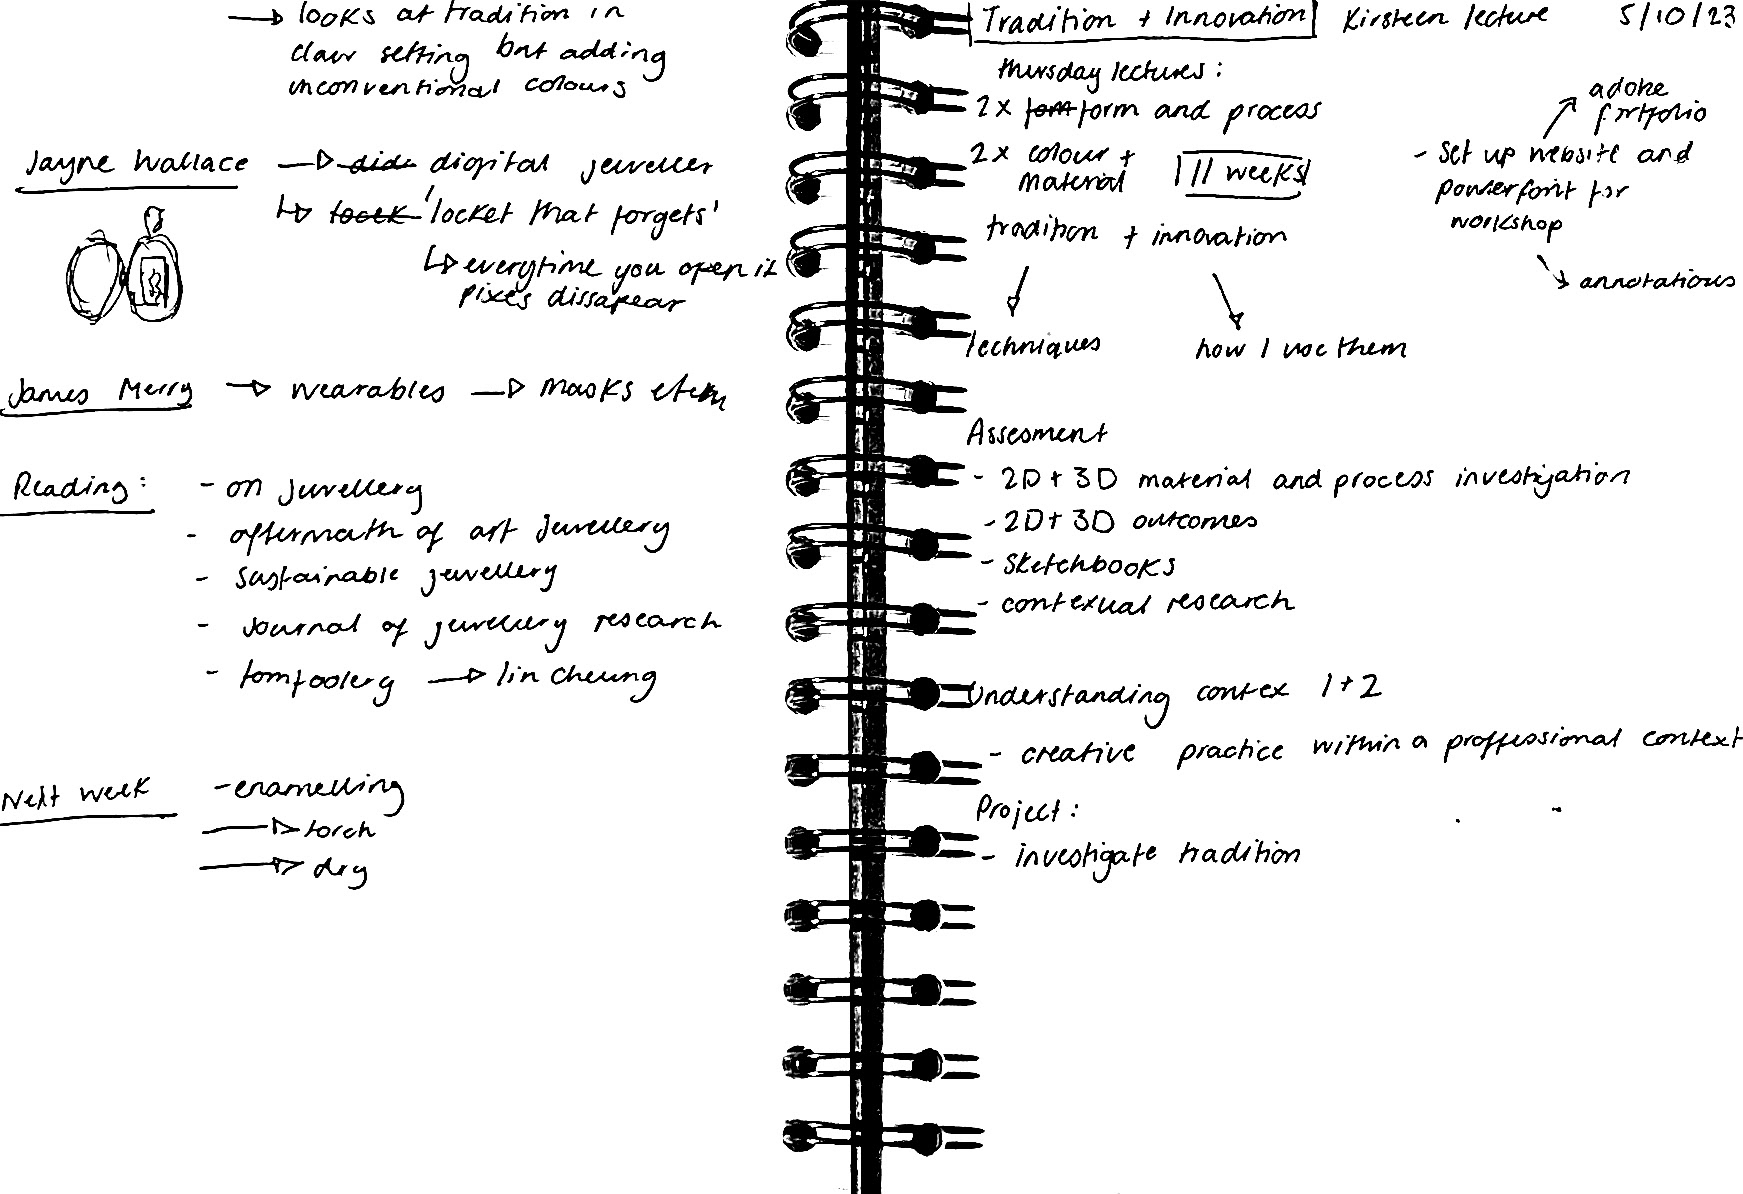 → looks at tradition in
claw setting but adding
unconventional colours
Jayne Wallace → did digital jeweller
↳ lock 'locket that forgets'
↳ everytime you open it
pixes dissapear
James Merry → wearables → masks
Reading: - on jewellery
- aftermath of art jewellery
- sustainable jewellery
- Journal of jewellery research
- tomfoolery → lin cheung
Next week - enamelling
→ torch
→ dry
Tradition + Innovation Kirsteen lecture 5/10/23
thursday lectures:
2x form and process
2x colour +
material
11 weeks
tradition + innovation
techniques
how I use them
adobe
portfolio
- Set up website and
powerpoint for
workshop
annotations
Assesment
- 2D + 3D material and process investigation
- 2D + 3D outcomes
- Sketchbooks
- contexual research
Understanding contex 1+2
- creative practice within a proffessional context
Project:
- investigate tradition